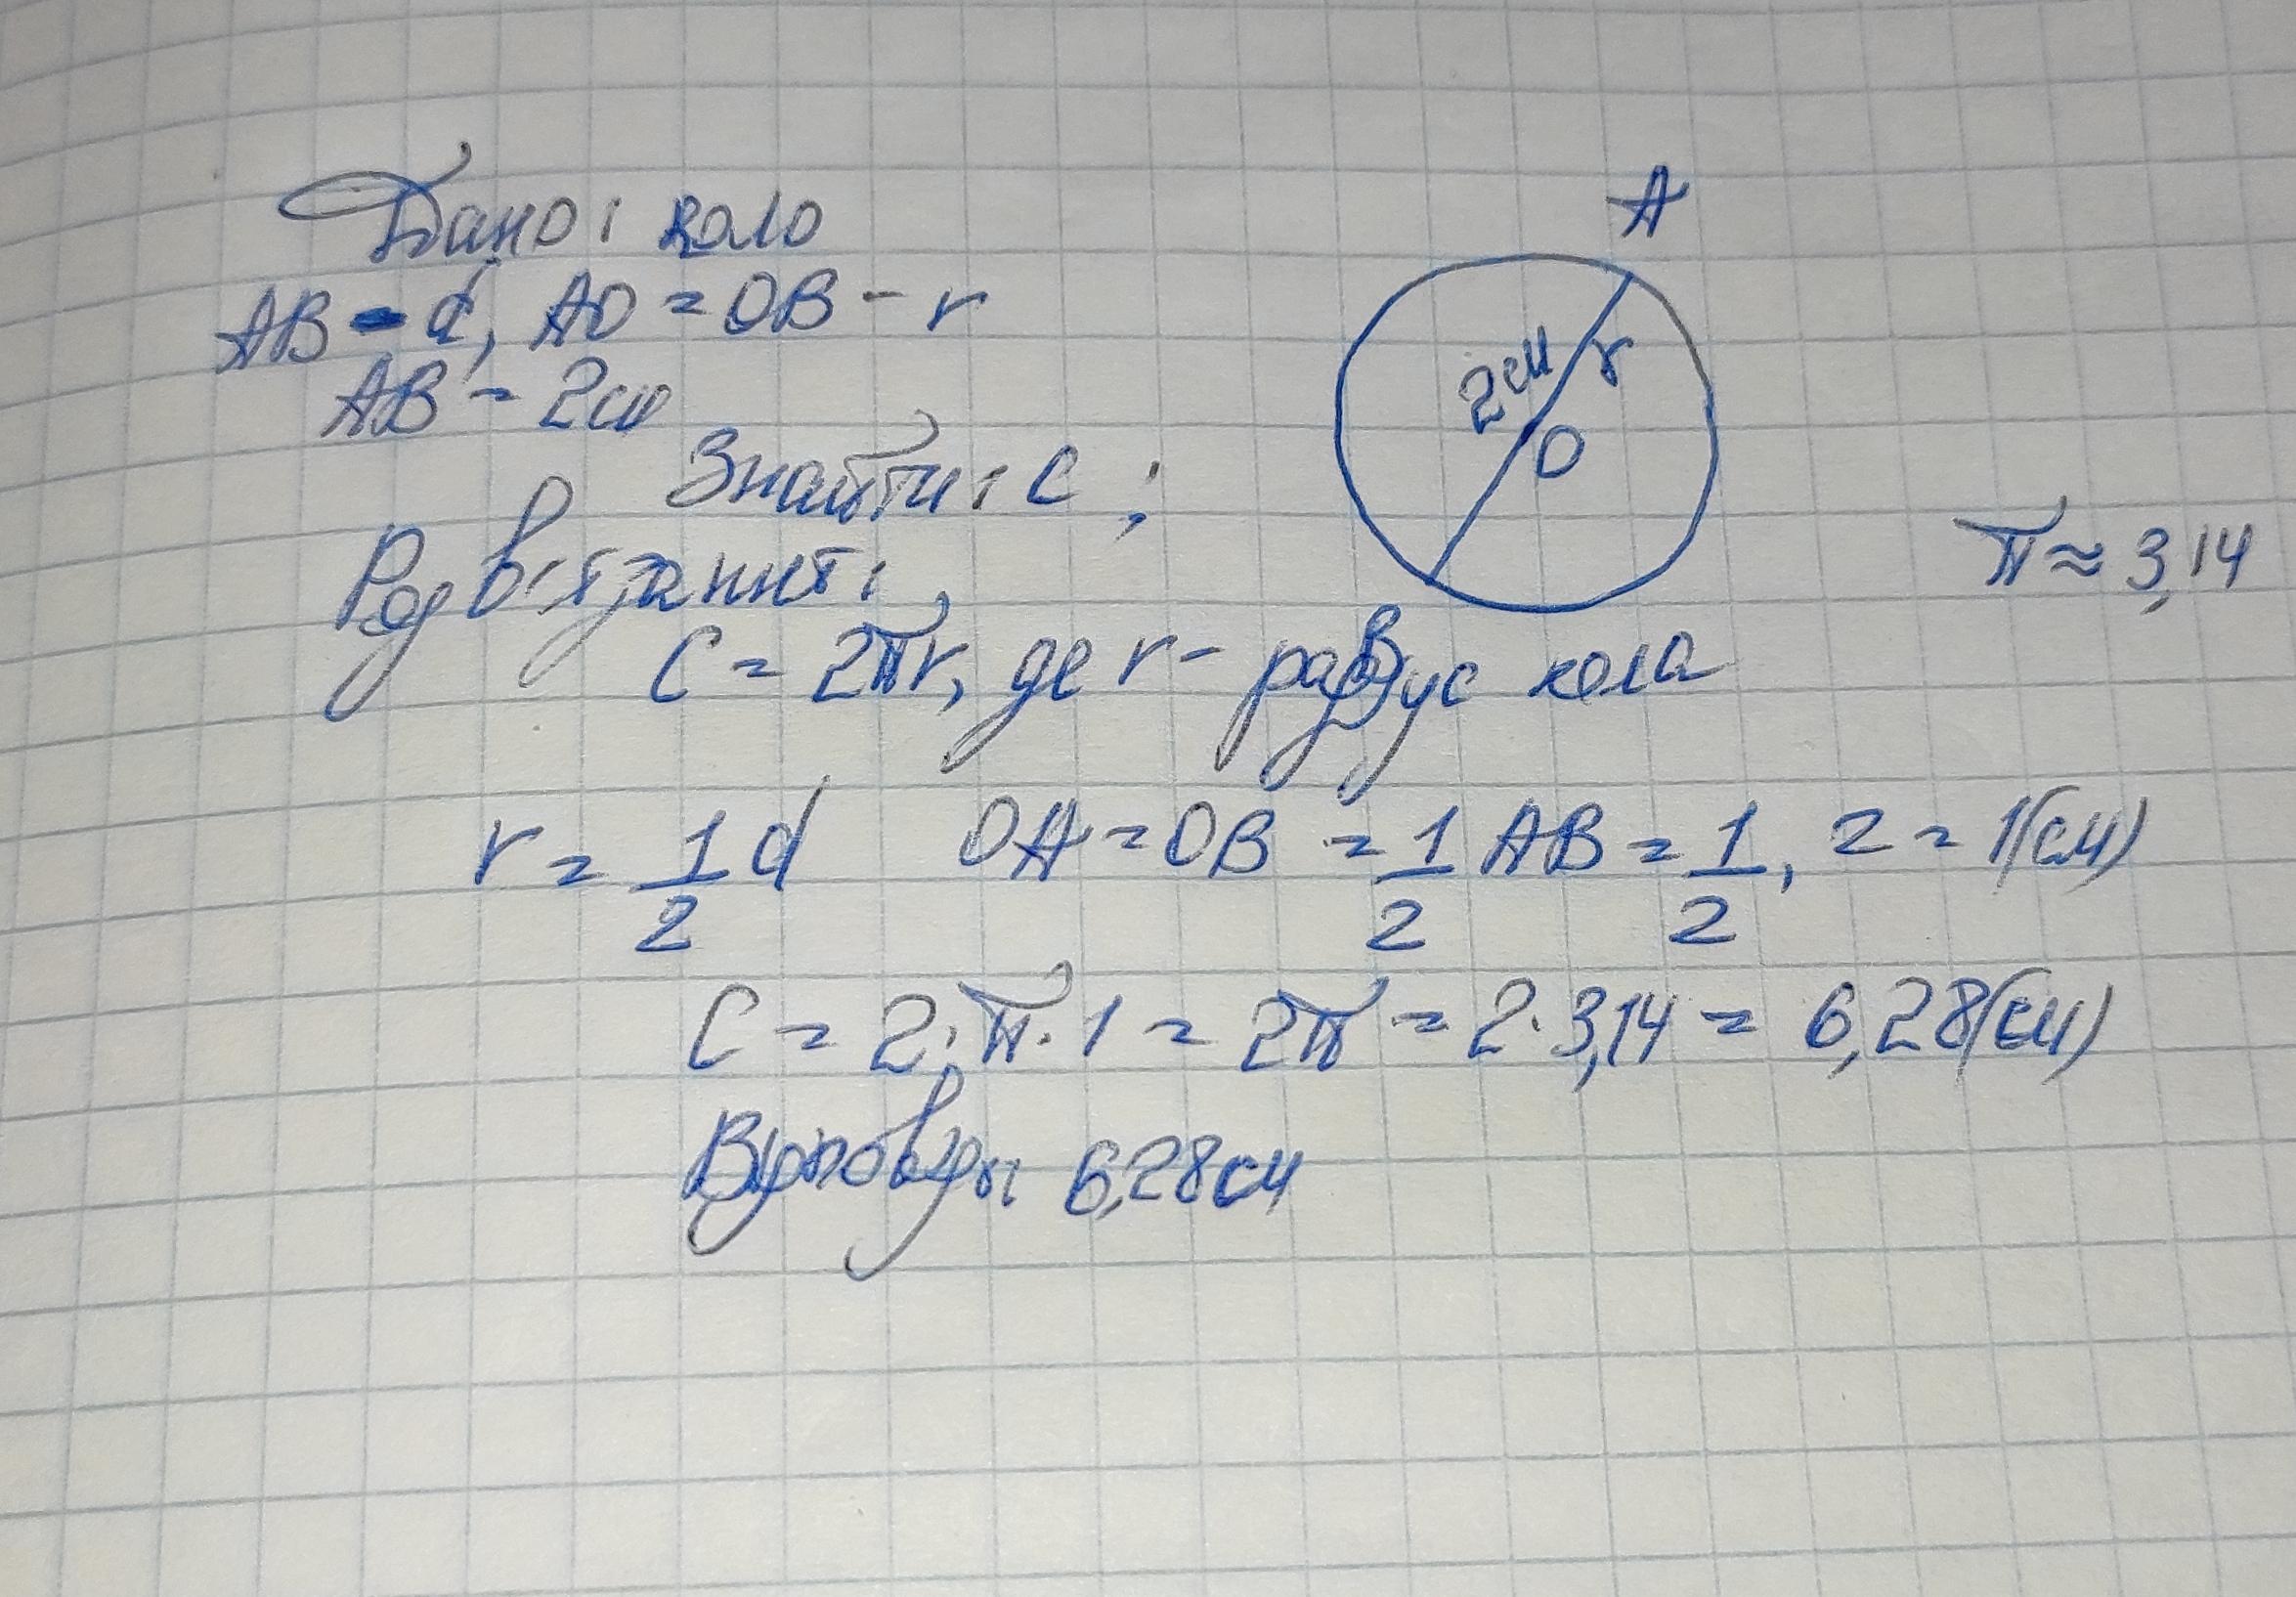 Дано: коло
AB - d, AO = OB - r
AB = 2см
Знайти: C;
Розв'язання:
A
2см
r
O
π ≈ 3,14
C = 2πr, де r - радіус кола
r = 1/2 d OA = OB = 1/2 AB = 1/2 · 2 = 1(см)
C = 2 · π · 1 = 2π = 2 · 3,14 = 6,28(см)
Відповідь: 6,28см